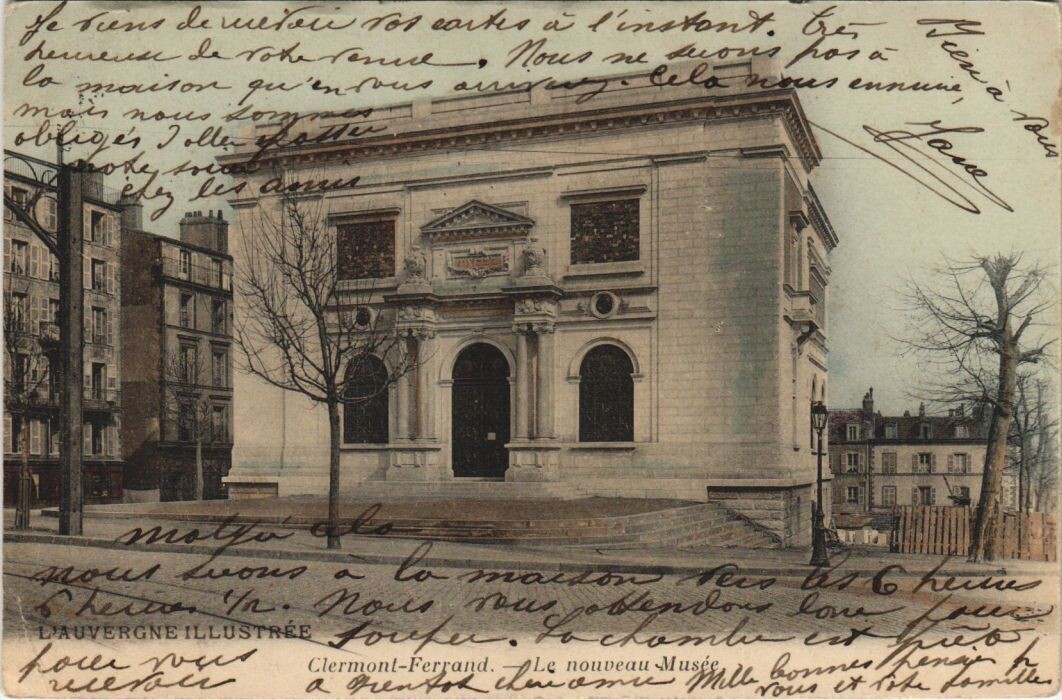 Je viens de recevoir vos cartes à l'instant. Très
heureuse de votre venue. Nous ne serons pas à
la maison qu'en vous arrivez. Cela nous ennuie,
mais nous sommes
obligés d'aller
notre
chez les amis
Bien à vous
Jane
malgré cela
nous serons a la maison vers les 6 heures
6 heures 1/2. Nous vous attendons pour
souper. La chambre est
L'AUVERGNE ILLUSTRÉE
Clermont-Ferrand. — Le nouveau Musée
pour vous
recevoir
a bientot chère amie Mille bonnes
vous et votre famille